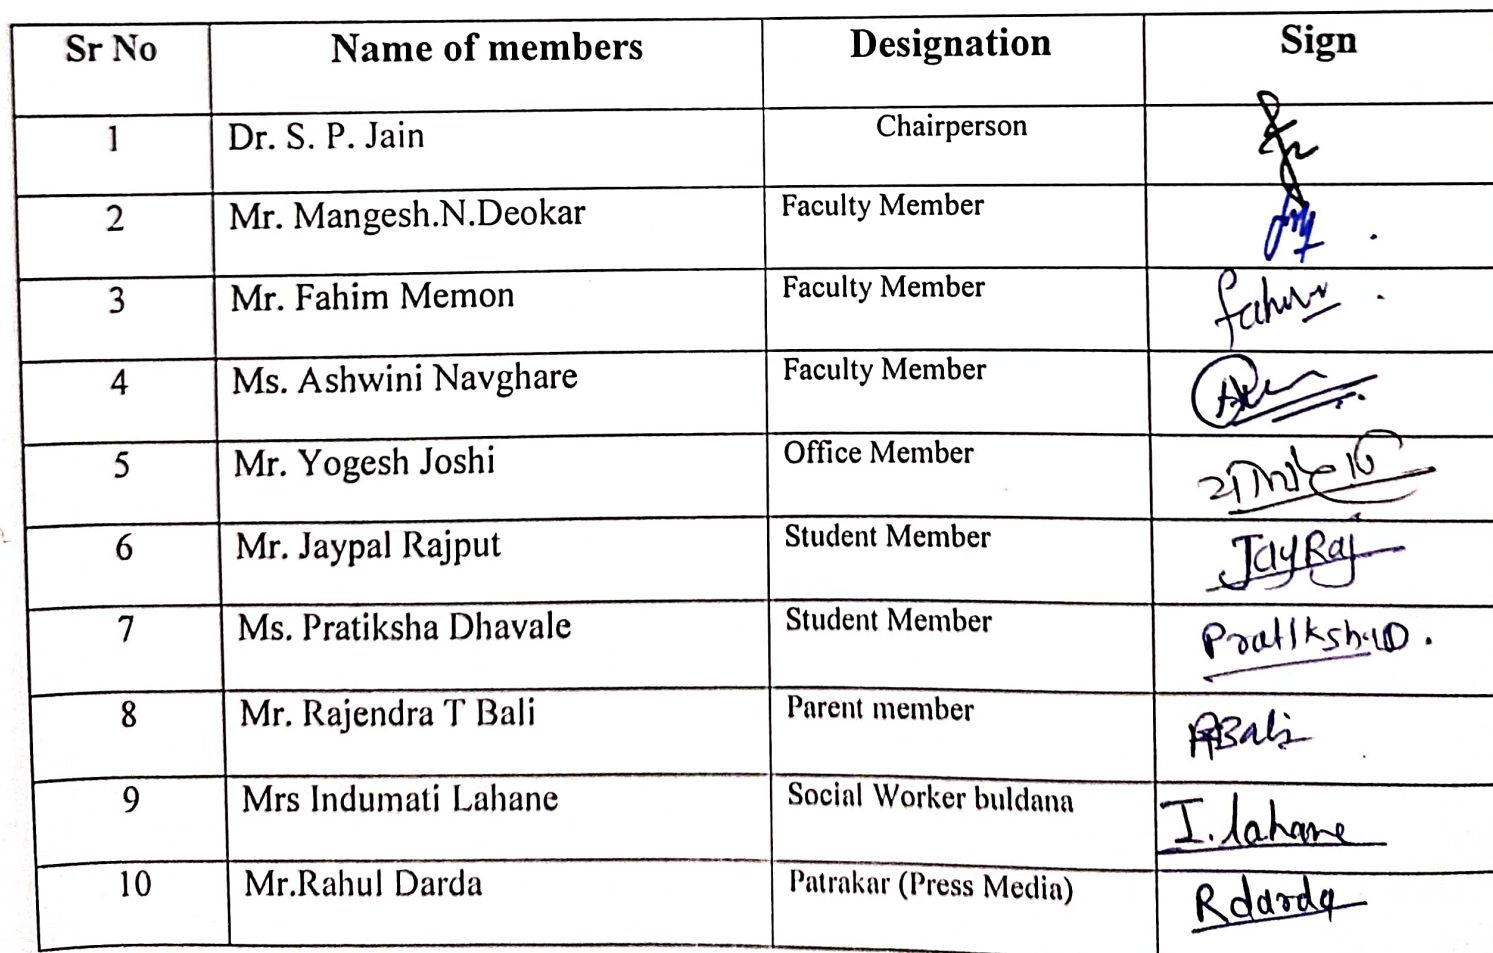 Sr No Name of members Designation Sign
1 Dr. S. P. Jain Chairperson
2 Mr. Mangesh.N.Deokar Faculty Member
3 Mr. Fahim Memon Faculty Member Fahim
4 Ms. Ashwini Navghare Faculty Member
5 Mr. Yogesh Joshi Office Member
6 Mr. Jaypal Rajput Student Member JayRaj
7 Ms. Pratiksha Dhavale Student Member PratikshaD.
8 Mr. Rajendra T Bali Parent member RBali
9 Mrs Indumati Lahane Social Worker buldana I. lahane
10 Mr.Rahul Darda Patrakar (Press Media) Rdarda